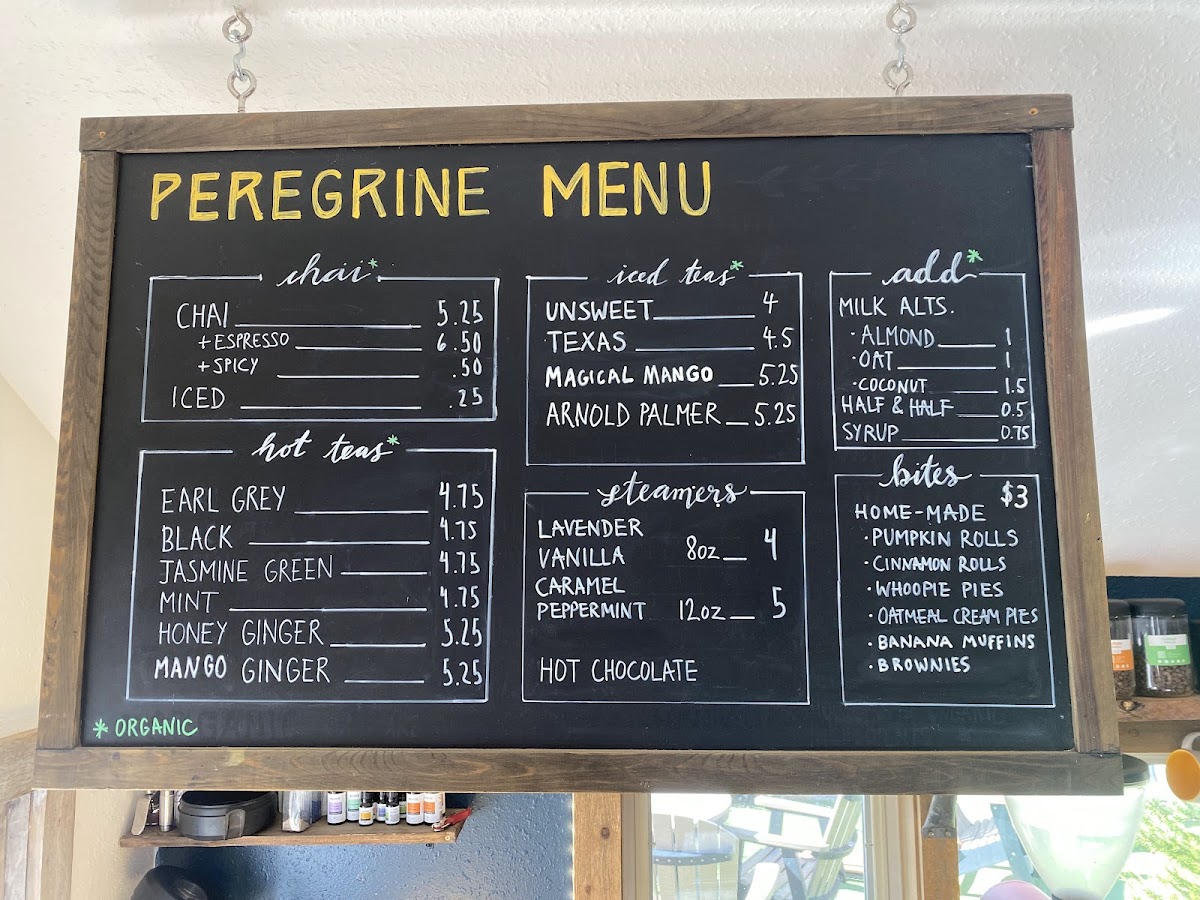 PEREGRINE MENU
chai*
CHAI 5.25
+ ESPRESSO 6.50
+ SPICY .50
ICED .25
hot teas*
EARL GREY 4.75
BLACK 4.75
JASMINE GREEN 4.75
MINT 4.75
HONEY GINGER 5.25
MANGO GINGER 5.25
* ORGANIC
iced teas*
UNSWEET 4
TEXAS 4.5
MAGICAL MANGO 5.25
ARNOLD PALMER 5.25
steamers
LAVENDER
VANILLA 8oz 4
CARAMEL
PEPPERMINT 12oz 5
HOT CHOCOLATE
add*
MILK ALTS.
· ALMOND 1
· OAT 1
· COCONUT 1.5
HALF & HALF 0.5
SYRUP 0.75
bites
$3
HOME-MADE
· PUMPKIN ROLLS
· CINNAMON ROLLS
· WHOOPIE PIES
· OATMEAL CREAM PIES
· BANANA MUFFINS
· BROWNIES